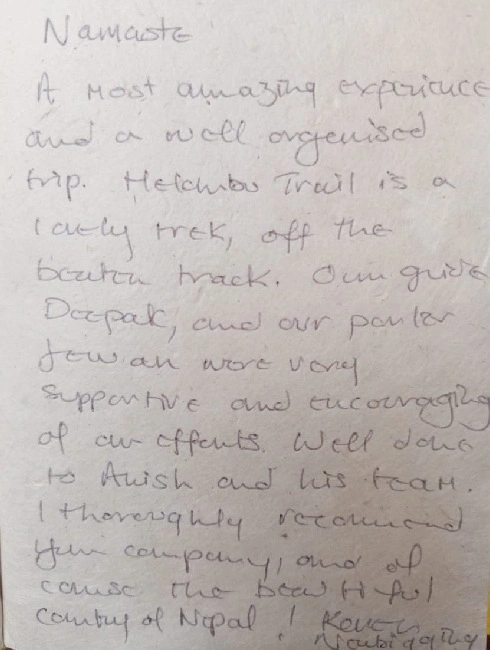 Namaste
A most amazing experience
and a well organised
trip. Helambu Trail is a
lovely trek, off the
beaten track. Our guide
Deepak, and our porter
were very
supportive and encouraging
of our efforts. Well done
to Anish and his team.
I thoroughly recommend
your company, and of
course the beautiful
country of Nepal! Karen
Newbigging